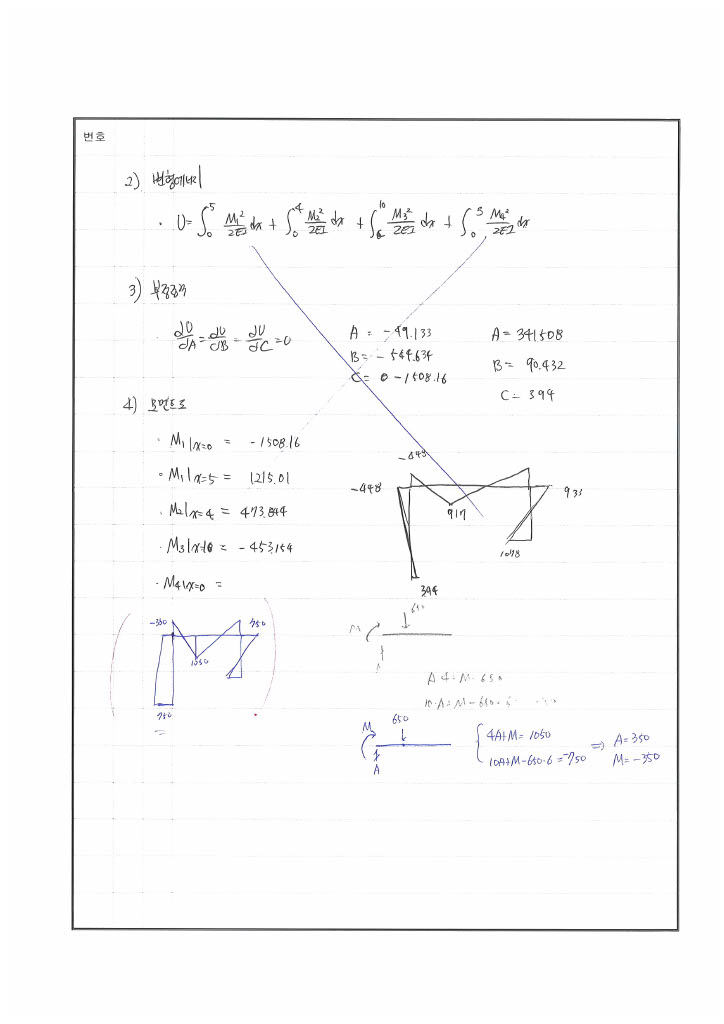 번호
2) 변형에너지
· U = ∫₀⁵ M₁²/2EI dx + ∫₀⁴ M₂²/2EI dx + ∫₆¹⁰ M₃²/2EI dx + ∫₀³ M₄²/2EI dx
3)
· dU/dA = dU/dB = dU/dC = 0
A = -49.133
B = -564.634
C = 0 -1508.16
A = 341508
B = 90.432
C = 394
4) 모멘트로
· M₁|x=0 = -1508.16
· M₁|x=5 = 1215.01
· M₂|x=4 = 473.844
· M₃|x=10 = -453.154
· M₄|x=0 =
-449
-448
917
933
1078
394
-350
750
1050
750
=
M
650
A
A 4 + M 650
10·A = M - 650·6
M
650
A
4A+M = 1050
10A+M-650·6 = -750
⇒ A = 350
M = -350